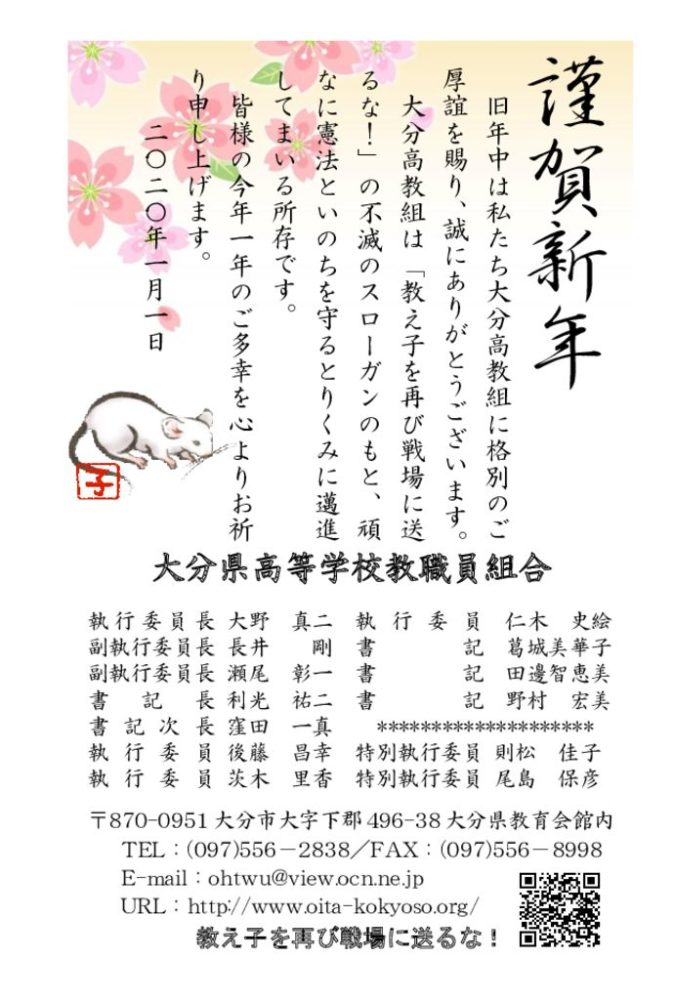 謹賀新年
旧年中は私たち大分高教組に格別のご
厚誼を賜り、誠にありがとうございます。
大分高教組は「教え子を再び戦場に送
るな！」の不滅のスローガンのもと、頑
なに憲法といのちを守るとりくみに邁進
してまいる所存です。
皆様の今年一年のご多幸を心よりお祈
り申し上げます。
二〇二〇年一月一日
子
大分県高等学校教職員組合
執行委員長 大野 真二 執行委員 仁木 史絵
副執行委員長 長井 剛 書記 葛城美華子
副執行委員長 瀬尾 彰一 書記 田邊智恵美
書記長 利光 祐二 書記 野村 宏美
書記次長 窪田 一真 ********************
執行委員 後藤 昌幸 特別執行委員 則松 佳子
執行委員 茨木 里香 特別執行委員 尾島 保彦
〒870-0951 大分市大字下郡496-38 大分県教育会館内
TEL：(097)556－2838／FAX：(097)556－8998
E-mail：ohtwu@view.ocn.ne.jp
URL：http://www.oita-kokyoso.org/
教え子を再び戦場に送るな！